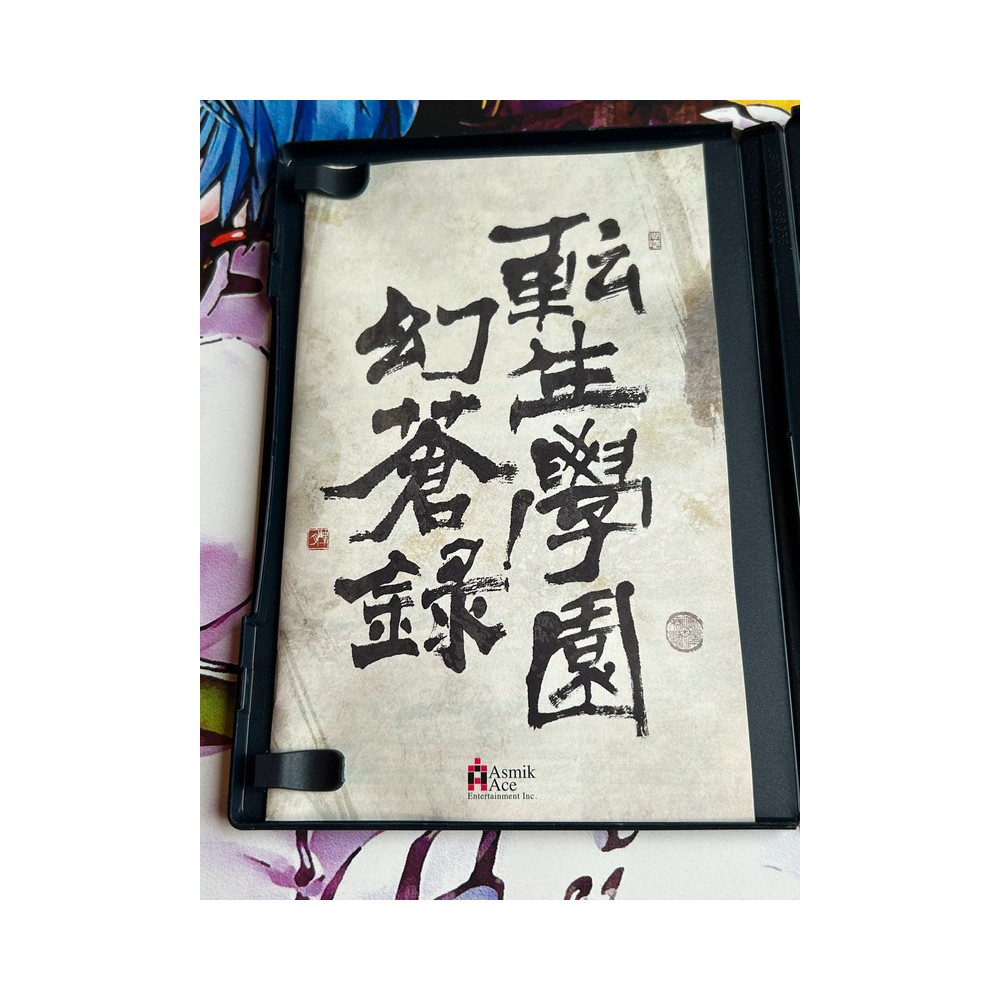 転生學園
幻蒼録
Asmik
Ace
Entertainment Inc.